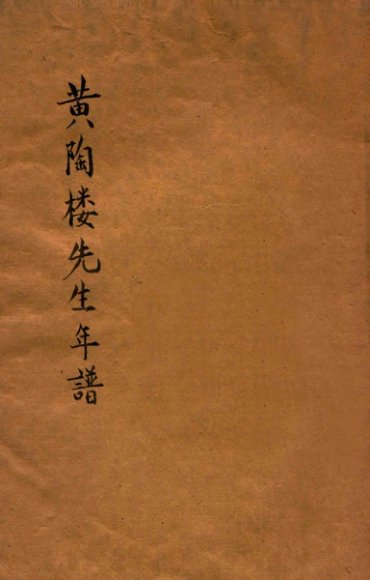 黄陶楼先生年譜